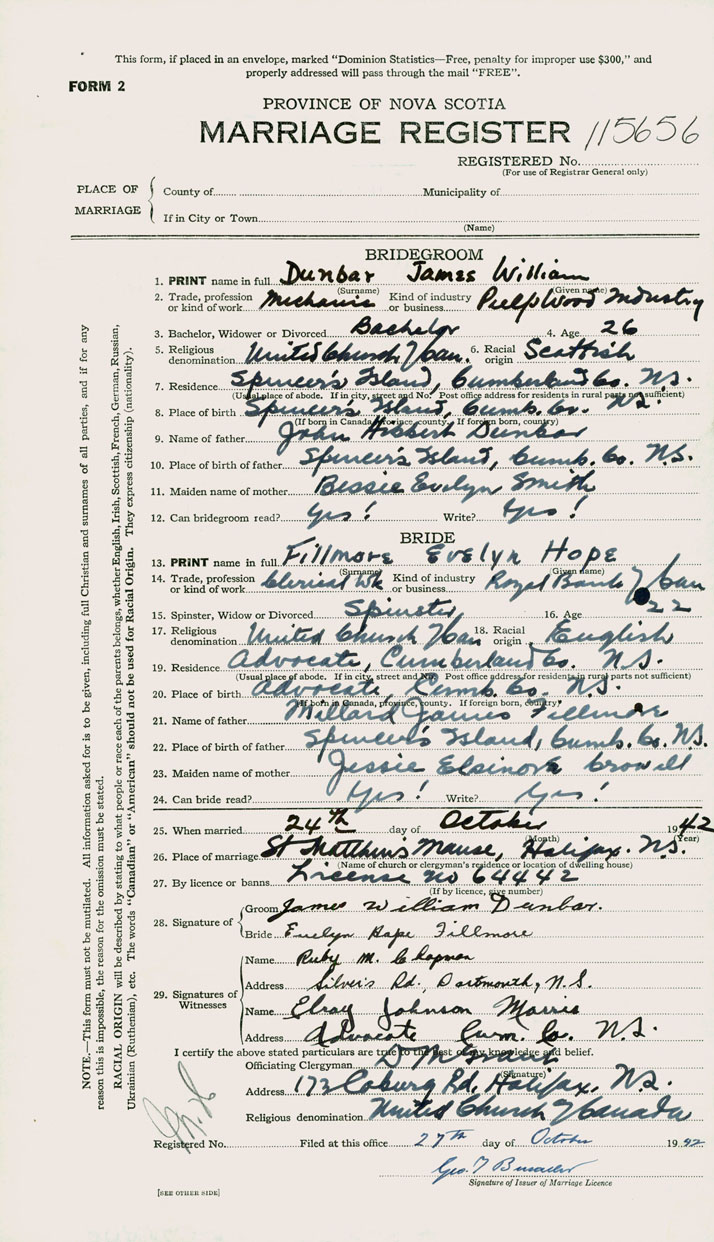 This form, if placed in an envelope, marked "Dominion Statistics—Free, penalty for improper use $300," and
properly addressed will pass through the mail "FREE".
FORM 2
PROVINCE OF NOVA SCOTIA
MARRIAGE REGISTER 115656
REGISTERED No.
(For use of Registrar General only)
PLACE OF MARRIAGE
County of Municipality of
If in City or Town
(Name)
BRIDEGROOM
1. PRINT name in full Dunbar James William
(Surname) (Given name)
2. Trade, profession or kind of work Mechanic Kind of industry or business Pulpwood Industry
3. Bachelor, Widower or Divorced Bachelor 4. Age 26
5. Religious denomination United Church of Can. 6. Racial origin Scottish
7. Residence Spencer's Island, Cumberland Co. N.S.
(Usual place of abode. If in city, street and No. Post office address for residents in rural parts not sufficient)
8. Place of birth Spencer's Island, Cumb. Co. N.S.
(If born in Canada, province, county. If foreign born, country)
9. Name of father John Dunbar
10. Place of birth of father Spencer's Island, Cumb. Co. N.S.
11. Maiden name of mother Bessie Evelyn Smith
12. Can bridegroom read? Yes! Write? Yes!
BRIDE
13. PRINT name in full Fillmore Evelyn Hope
(Surname) (Given name)
14. Trade, profession or kind of work Clerical Wk Kind of industry or business Royal Bank of Can
15. Spinster, Widow or Divorced Spinster 16. Age 22
17. Religious denomination United Church of Can 18. Racial origin English
19. Residence Advocate, Cumberland Co. N.S.
(Usual place of abode. If in city, street and No. Post office address for residents in rural parts not sufficient)
20. Place of birth Advocate, Cumb. Co. N.S.
(If born in Canada, province, county. If foreign born, country)
21. Name of father Millard James Fillmore
22. Place of birth of father Spencer's Island, Cumb. Co. N.S.
23. Maiden name of mother Jessie Elsinore Crowell
24. Can bride read? Yes! Write? Yes!
25. When married 24th day of October 1942
(Month) (Year)
26. Place of marriage St Matthews Manse, Halifax. N.S.
(Name of church or clergyman's residence or location of dwelling house)
27. By licence or banns License no 64442
(If by licence, give number)
28. Signature of
Groom James William Dunbar.
Bride Evelyn Hope Fillmore
29. Signatures of Witnesses
Name Ruby M. Chapman
Address Silver's Rd. Dartmouth, N.S.
Name Elroy Johnson Morris
Address Advocate Cum. Co. N.S.
I certify the above stated particulars are true to the best of my knowledge and belief.
Officiating Clergyman
(Signature)
Address 173 Coburg Rd, Halifax. N.S.
Religious denomination United Church of Canada
Registered No. Filed at this office 27th day of October 1942
Geo. T
Signature of Issuer of Marriage Licence
[SEE OTHER SIDE]
NOTE.—This form must not be mutilated. All information asked for is to be given, including full Christian and surnames of all parties, and if for any
reason this is impossible, the reason for the omission must be stated.
RACIAL ORIGIN will be described by stating to what people or race each of the parents belongs, whether English, Irish, Scottish, French, German, Russian,
Ukrainian (Ruthenian), etc. The words "Canadian" or "American" should not be used for Racial Origin. They express citizenship (nationality).